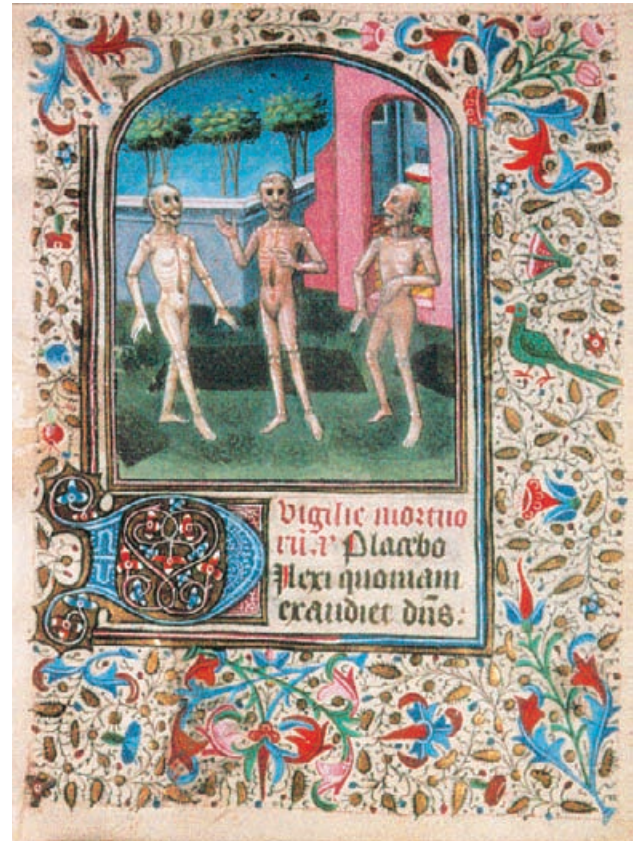 Vigilie mortuo
rū. a' Placebo
DIlexi quoniam
exaudiet dn̄s: